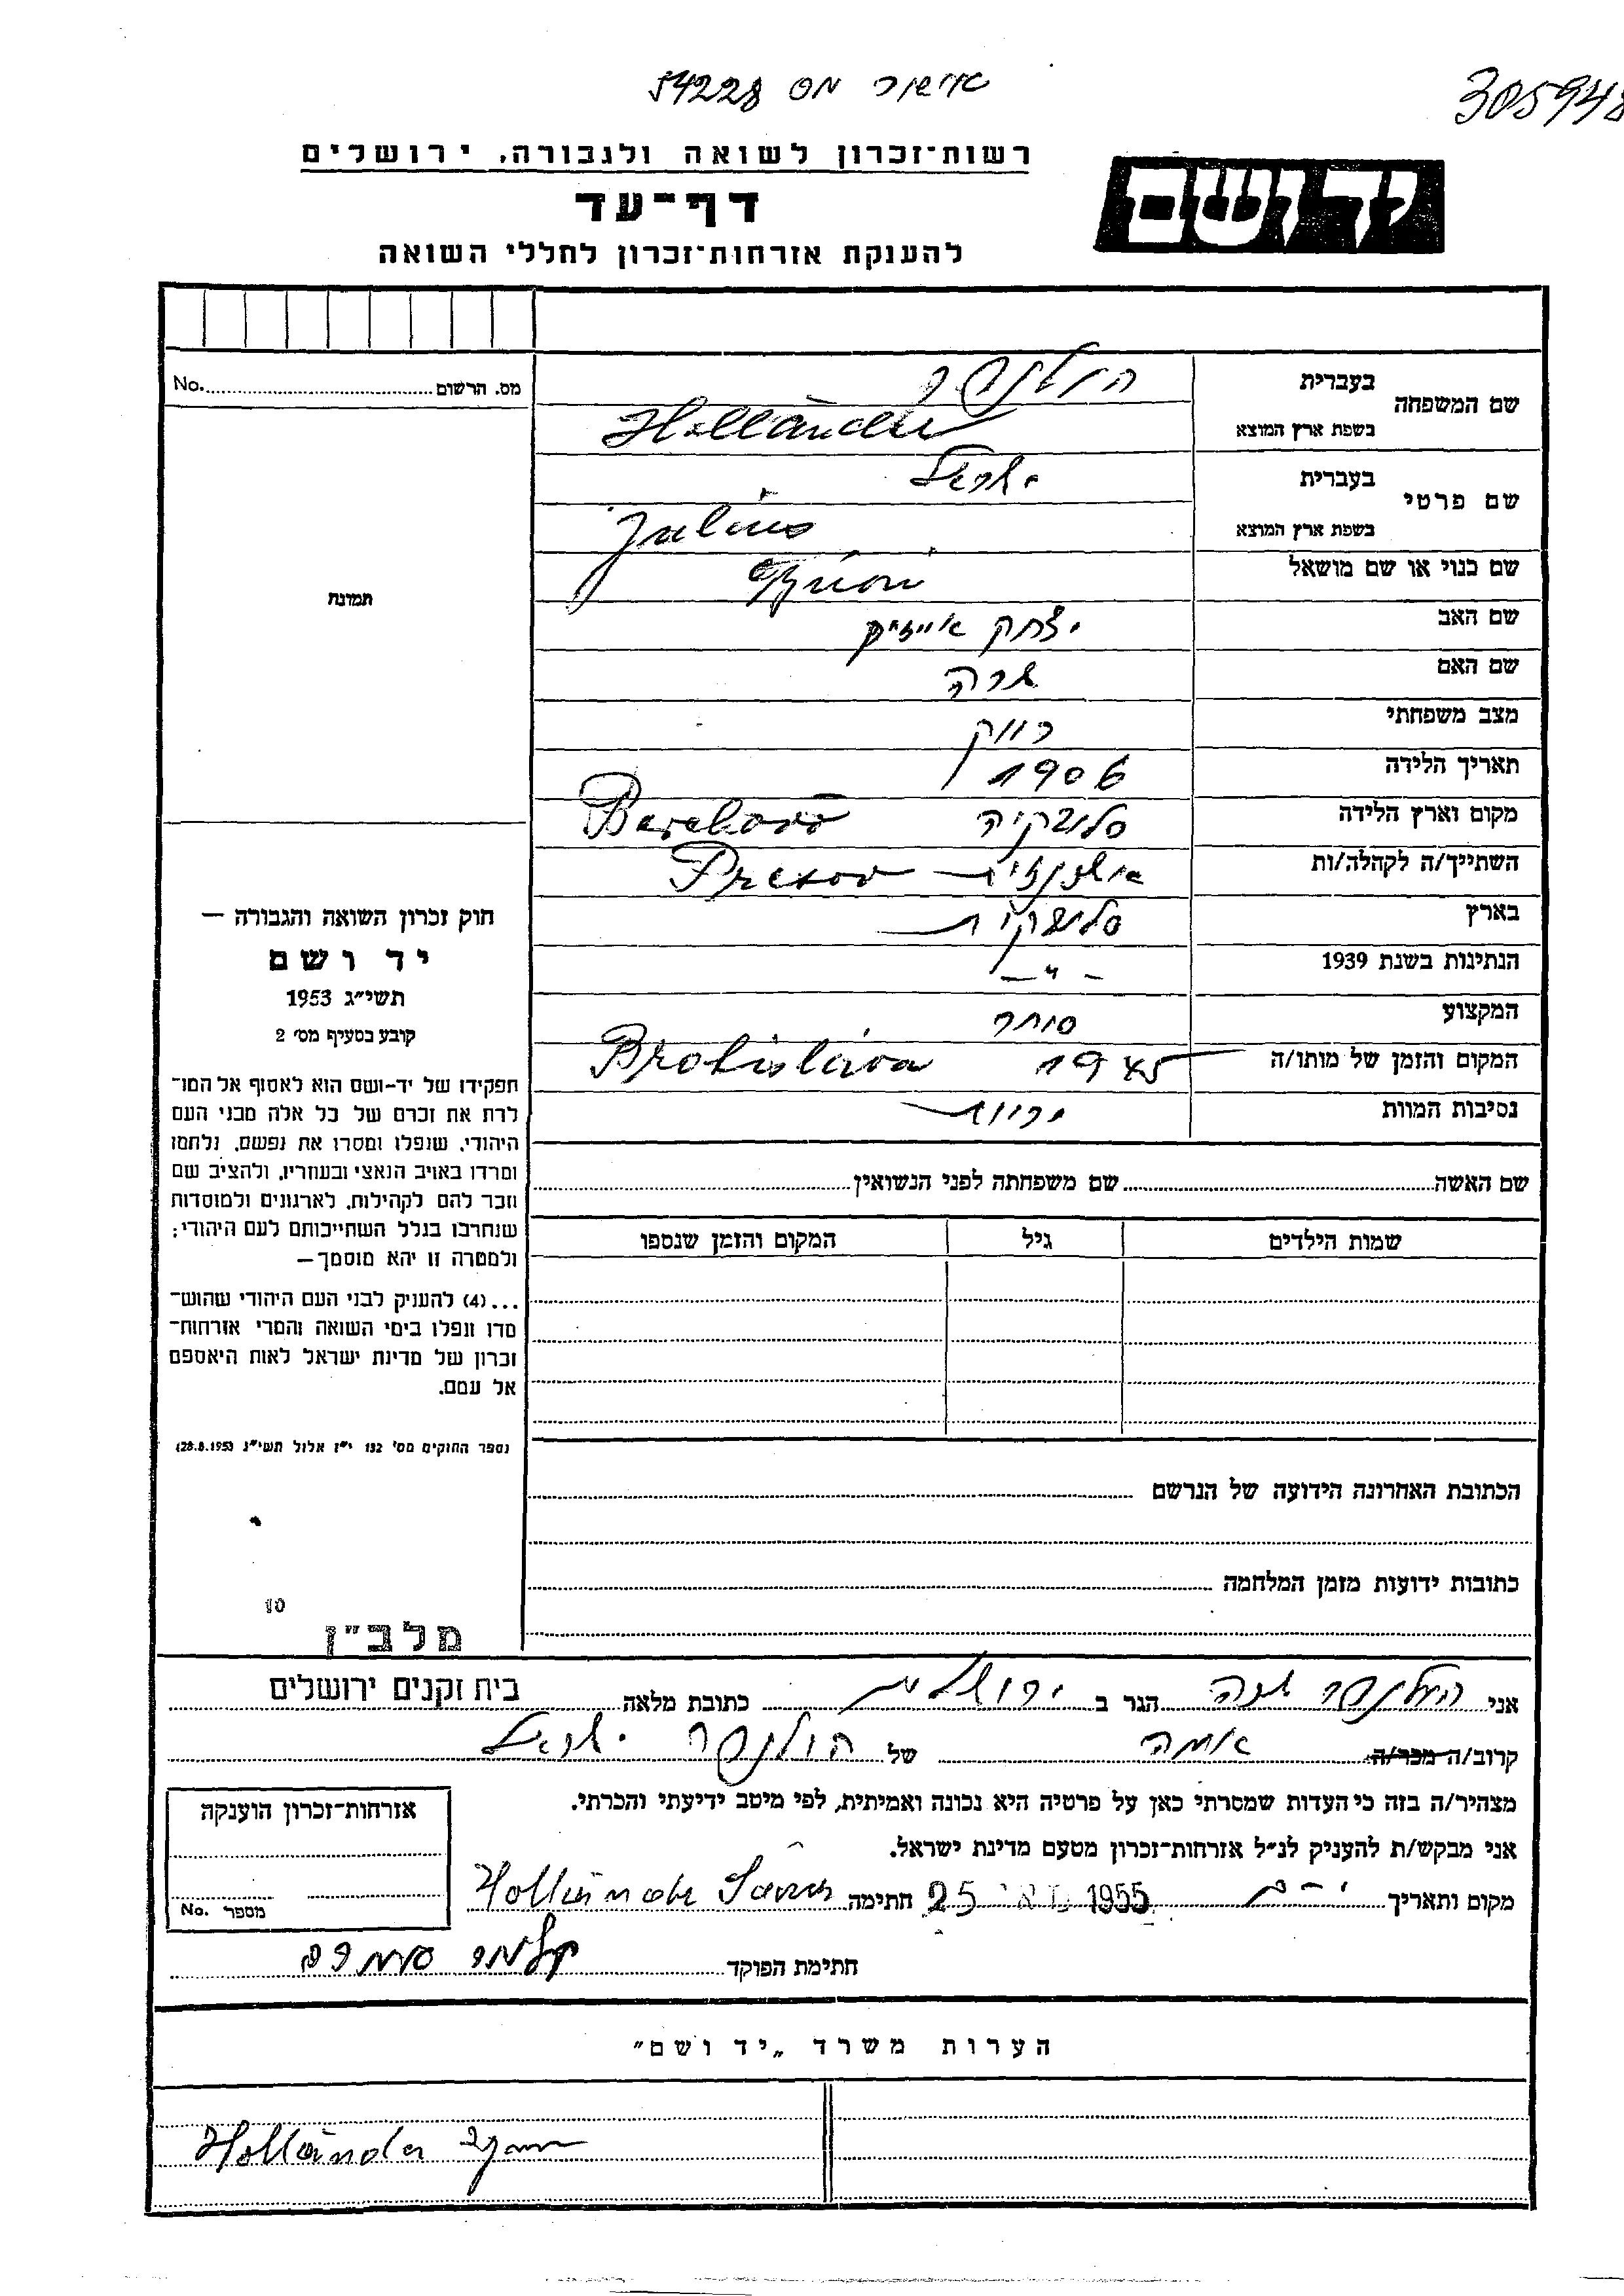 אישור מס 54228
305948
רשות־זכרון לשואה ולגבורה, ירושלים
יד ושם
דף־עד
להענקת אזרחות־זכרון לחללי השואה
מס. הרשום No.
תמונה
שם המשפחה
בעברית הולנדר
בשפת ארץ המוצא Holländer
שם פרטי
בעברית ישראל
בשפת ארץ המוצא Julius
שם כנוי או שם מושאל
שם האב יצחק אייזיק
שם האם שרה
מצב משפחתי רווק
תאריך הלידה 1906
מקום וארץ הלידה סלובקיה
השתייך/ה לקהלה/ות Presov
בארץ סלובקיה
הנתינות בשנת 1939 – " –
המקצוע סוחר
המקום והזמן של מותו/ה 1945 Bratislava
נסיבות המוות
שם האשה שם משפחתה לפני הנשואין
שמות הילדים גיל המקום והזמן שנספו
חוק זכרון השואה והגבורה —
יד ושם
תשי״ג 1953
קובע בסעיף מס׳ 2
תפקידו של יד־ושם הוא לאסוף אל המו־
לדת את זכרם של כל אלה מבני העם
היהודי, שנפלו ומסרו את נפשם, נלחמו
ומרדו באויב הנאצי ובעוזריו, ולהציב שם
וזכר להם לקהילות, לארגונים ולמוסדות
שנחרבו בגלל השתייכותם לעם היהודי;
ולמטרה זו יהא מוסמך—
...(4) להעניק לבני העם היהודי שהוש־
מדו ונפלו בימי השואה והמרי אזרחות־
זכרון של מדינת ישראל לאות היאספם
אל עמם.
(ספר החוקים מס׳ 132 י״ז אלול תשי״ג 28.8.1953)
הכתובת האחרונה הידועה של הנרשם
כתובות ידועות מזמן המלחמה
10
מלב״ן
אני הולנדר שרה הגר ב ירושלים כתובת מלאה בית זקנים ירושלים
קרוב/ה מכר/ה אמה של הולנדר ישראל
מצהיר/ה בזה כי העדות שמסרתי כאן על פרטיה היא נכונה ואמיתית, לפי מיטב ידיעתי והכרתי.
אני מבקש/ת להעניק לנ״ל אזרחות־זכרון מטעם מדינת ישראל.
מקום ותאריך י-ם 25 1955 חתימה Holländer
חתימת הפוקד
אזרחות־זכרון הוענקה
מספר No.
הערות משרד „יד ושם״
Holländer